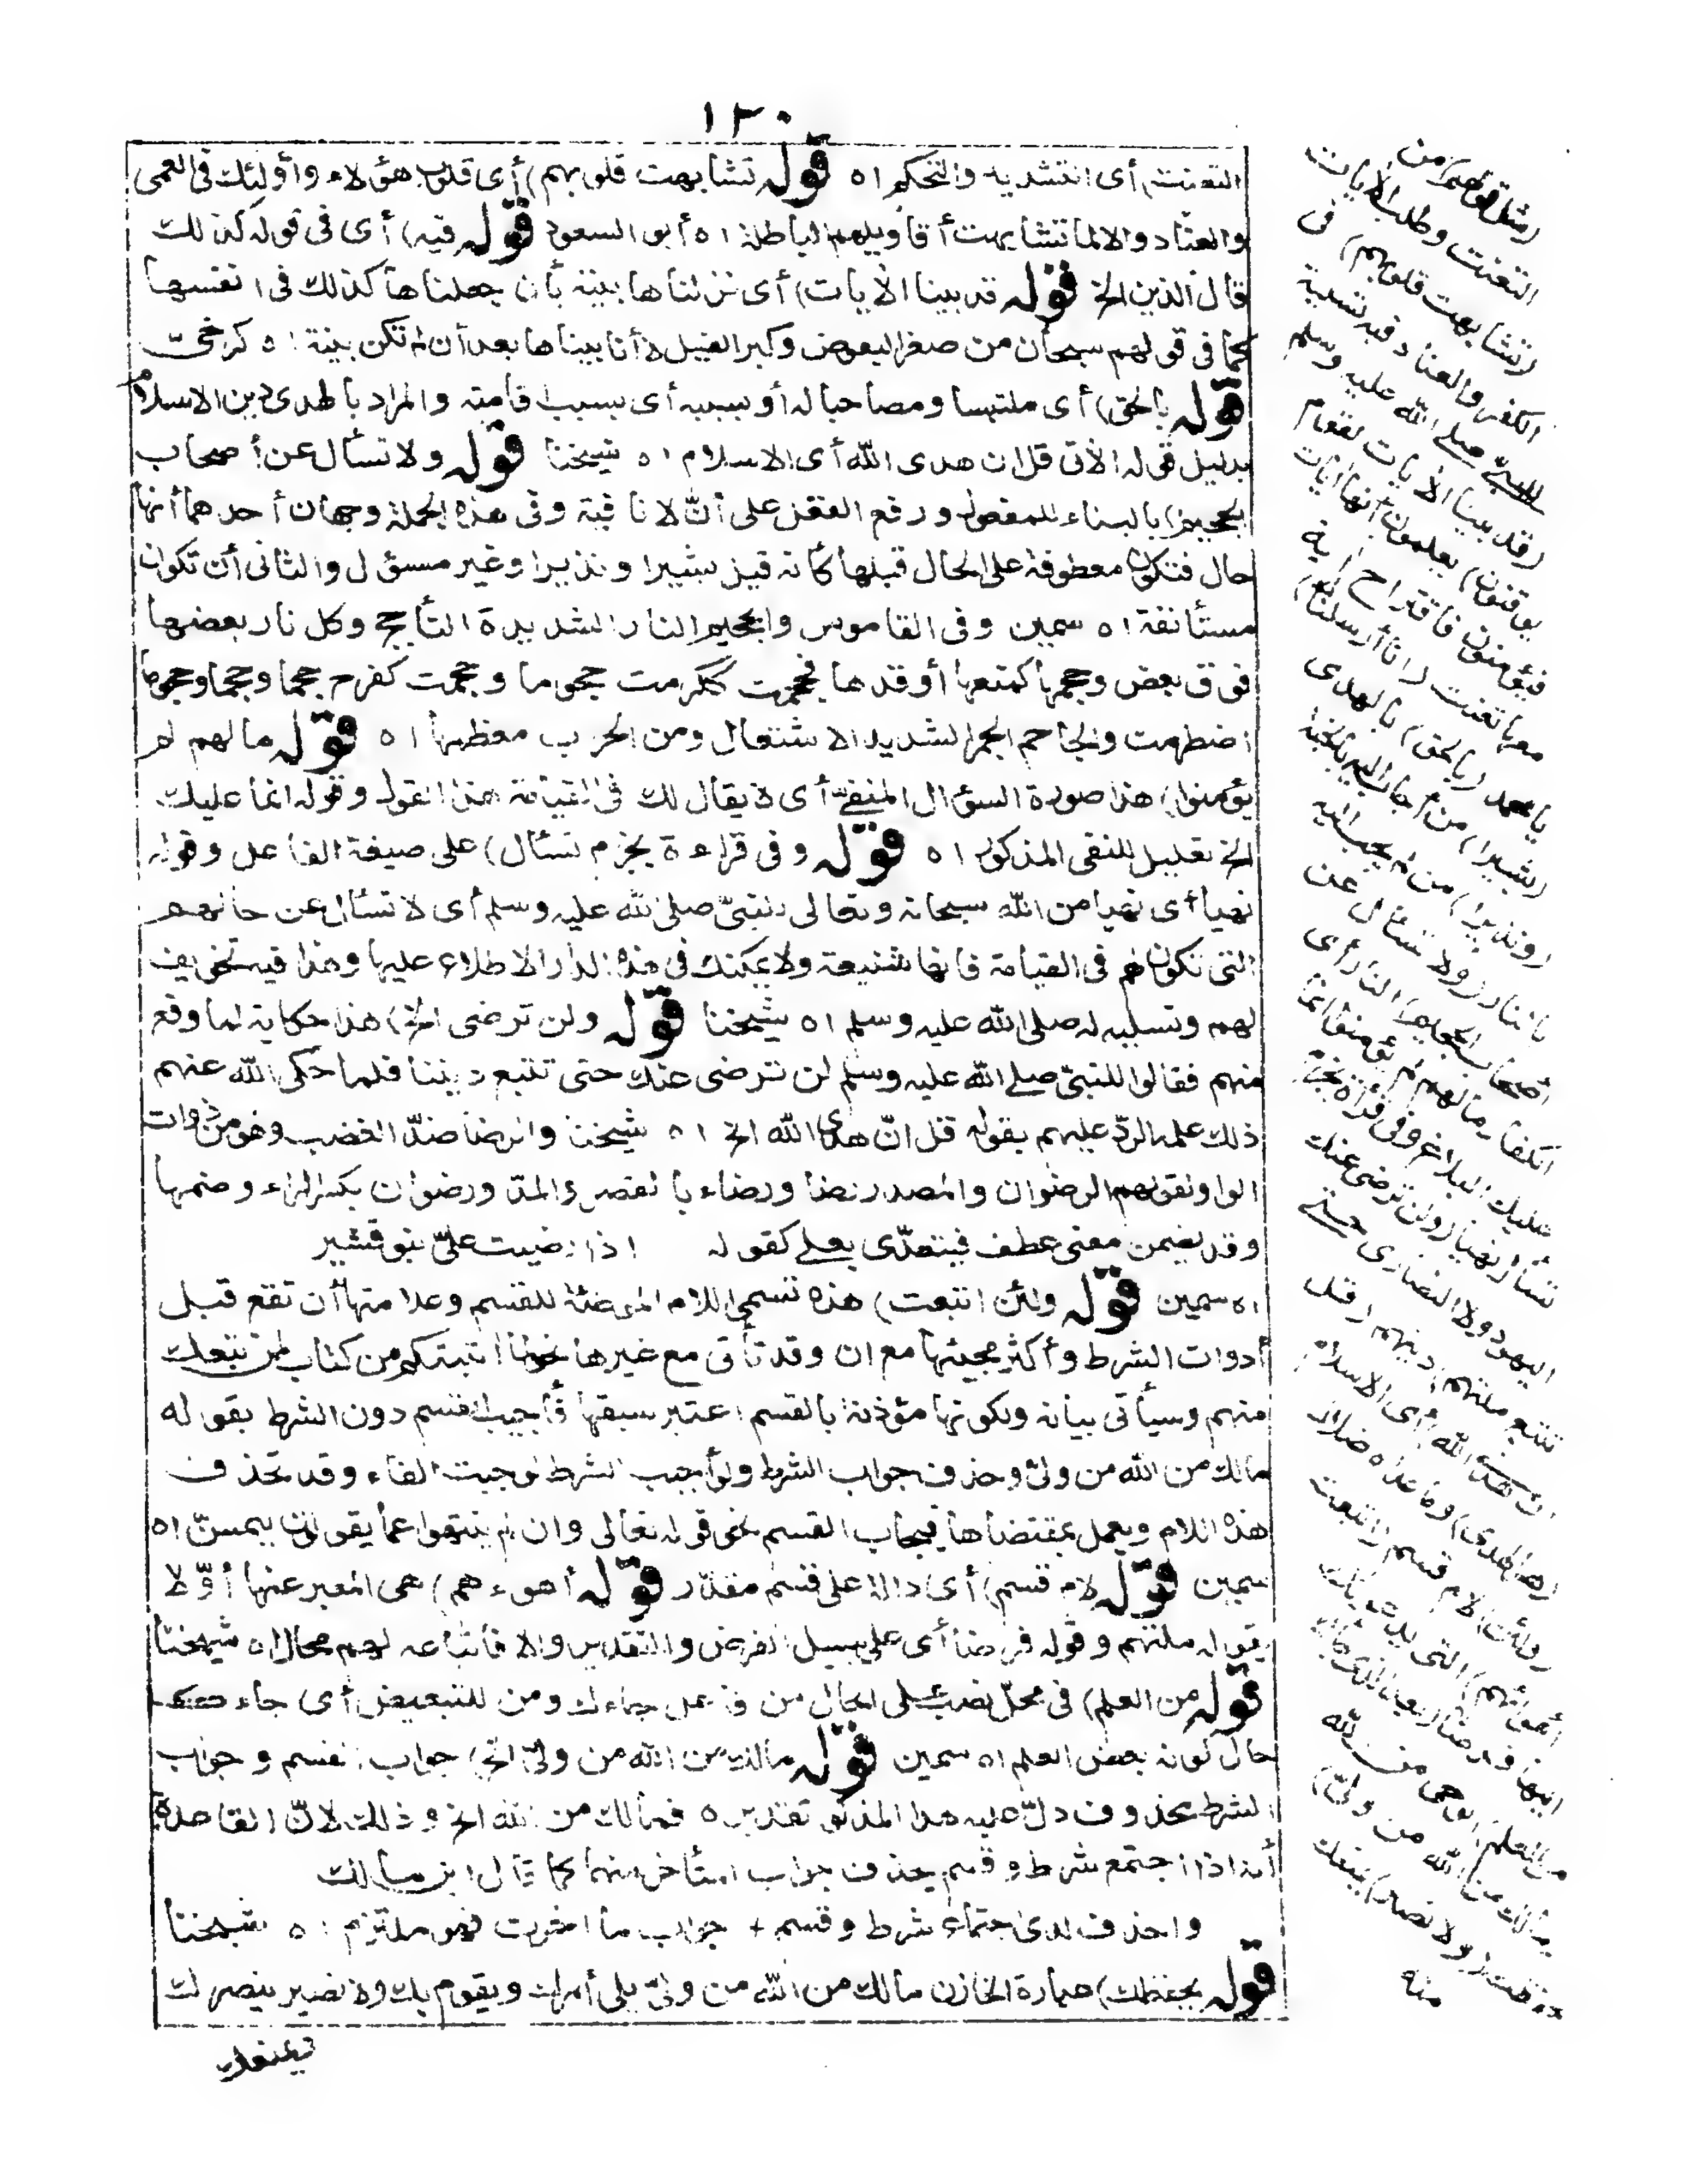 ١٣٠
التعنت) أى التشديد والتحكم اه قوله تشابهت قلوبهم) أى قلوب هؤلاء وأولئك فى العمى
والعناد والا لما تشابهت أقاويلهم الباطلة اه أبو السعود قوله فيه) أى فى قوله كذلك
قال الذين الخ قوله قد بينا الآيات) أى نزلناها بينة بأن جعلناها كذلك فى أنفسها
كما فى قولهم سبحان من صغر البعوض وكبر الفيل لا أنا بيناها بعد أن لم تكن بينة اه كرخىّ
قوله بالحق) أى ملتبسا ومصاحبا له أو بسببه أى بسبب اقامته والمراد بالهدى دين الاسلام
بدليل قوله الآتى قل ان هدى الله أى الاسلام اه شيخنا قوله ولا تسأل عن أصحاب
الجحيم) بالبناء للمفعول ورفع الفعل على أنّ لا نافية وفى هذه الجملة وجهان أحدهما أنها
حال فتكون معطوفة على الحال قبلها كأنه قيل بشيرا ونذيرا وغير مسؤل والثانى أن تكون
مستأنفة اه سمين وفى القاموس والجحيم النار الشديدة التأجج وكل نار بعضها
فوق بعض وجحمها كمنعها أوقدها فجحمت ككرمت جحوما وجحمت كفرح جحما وجحما وجحوما
اضطرمت والجاحم الجمر الشديد الاشتعال ومن الحرب معظمها اه قوله ما لهم لم
يؤمنوا) هذا صورة السؤال المنفىّ أى لا يقال لك فى القيامة هذا القول وقوله انما عليك
الخ تعليل للنفى المذكور اه قوله وفى قراءة بجزم تسأل) على صيغة الفاعل وقوله
نهيا أى نهيا من الله سبحانه وتعالى للنبىّ صلى الله عليه وسلم أى لا تسأل عن حالهم
التى تكون لهم فى القيامة فانها شنيعة ولا يمكنك فى هذه الدار الاطلاع عليها وهذا فيه تخويف
لهم وتسلية له صلى الله عليه وسلم اه شيخنا قوله ولن ترضى الخ) هذا حكاية لما وقع
منهم فقالوا للنبىّ صلى الله عليه وسلم لن نرضى عنك حتى تتبع ديننا فلما حكى الله عنهم
ذلك علمه الردّ عليهم بقوله قل انّ هدى الله الخ اه شيخنا والرضا ضدّ الغضب وهو من ذوات
الواو لقولهم الرضوان والمصدر رضا ورضاء بالقصر والمدّ ورضوان بكسر الراء وضمها
وقد يضمن معنى عطف فيتعدّى بعلى كقوله اذا رضيت علىّ بنو قشير
اه سمين قوله ولئن اتبعت) هذه تسمى اللام الموطئة للقسم وعلامتها أن تقع قبل
أدوات الشرط وأكثر مجيئها مع ان وقد تأتى مع غيرها نحو لما آتيتكم من كتاب لمن تبعك
منهم وسيأتى بيانه ولكونها مؤذنة بالقسم اعتبر سبقها فأجيب القسم دون الشرط بقوله
مالك من الله من ولىّ وحذف جواب الشرط ولو أجيب الشرط لوجبت الفاء وقد تحذف
هذه اللام ويعمل بمقتضاها فيجاب القسم نحو قوله تعالى وان لم ينتهوا عما يقولون ليمسنّ اه
سمين قوله لام قسم) أى دالة على قسم مقدّر قوله أهواءهم) هى المعبر عنها أوّلا
بقوله ملتهم وقوله فرضا أى على سبيل الفرض والتقدير والا فاتباعه لهم محال اه شيخنا
قوله من العلم) فى محلّ نصب على الحال من فاعل جاءك ومن للتبعيض أى جاءك
حال كونه بعض العلم اه سمين قوله مالك من الله من ولىّ الخ) جواب القسم وجواب
الشرط محذوف دلّ عليه هذا المذكور تقديره فمالك من الله الخ وذلك لانّ القاعدة
أنه اذا اجتمع شرط وقسم يحذف جواب المتأخر منهما كما قال ابن مالك
واحذف لدى اجتماع شرط وقسم + جواب ما أخرت فهو ملتزم اه شيخنا
قوله يحفظك) عبارة الخازن مالك من الله من ولىّ يلى أمرك ويقوم بك ولا نصير ينصرك
(مثل قولهم) من
التعنت وطلب الآيات
(تشابهت قلوبهم) فى
الكفر والعناد فيه تسلية
للنبىّ صلى الله عليه وسلم
(قد بينا الآيات لقوم
يوقنون) يعلمون أنها آيات
فيؤمنون فاقتراح آية
معها تعنت (انا أرسلناك)
يا محمد (بالحق) بالهدى
(بشيرا) من أجاب اليه بالجنة
(ونذيرا) من لم يجب اليه
بالنار (ولا تسأل عن
أصحاب الجحيم) النار أى
الكفار ما لهم لم يؤمنوا انما
عليك البلاغ وفى قراءة بجزم
تسأل نهيا (ولن ترضى عنك
اليهود ولا النصارى حتى
تتبع ملتهم) دينهم (قل
ان هدى الله) أى الاسلام
(هو الهدى) وما عداه ضلال
(ولئن) لام قسم (اتبعت
أهواءهم) التى يدعونك
اليها فرضا (بعد الذى جاءك
من العلم) الوحى من الله
(مالك من الله من ولىّ)
يحفظك (ولا نصير) يمنعك
منه